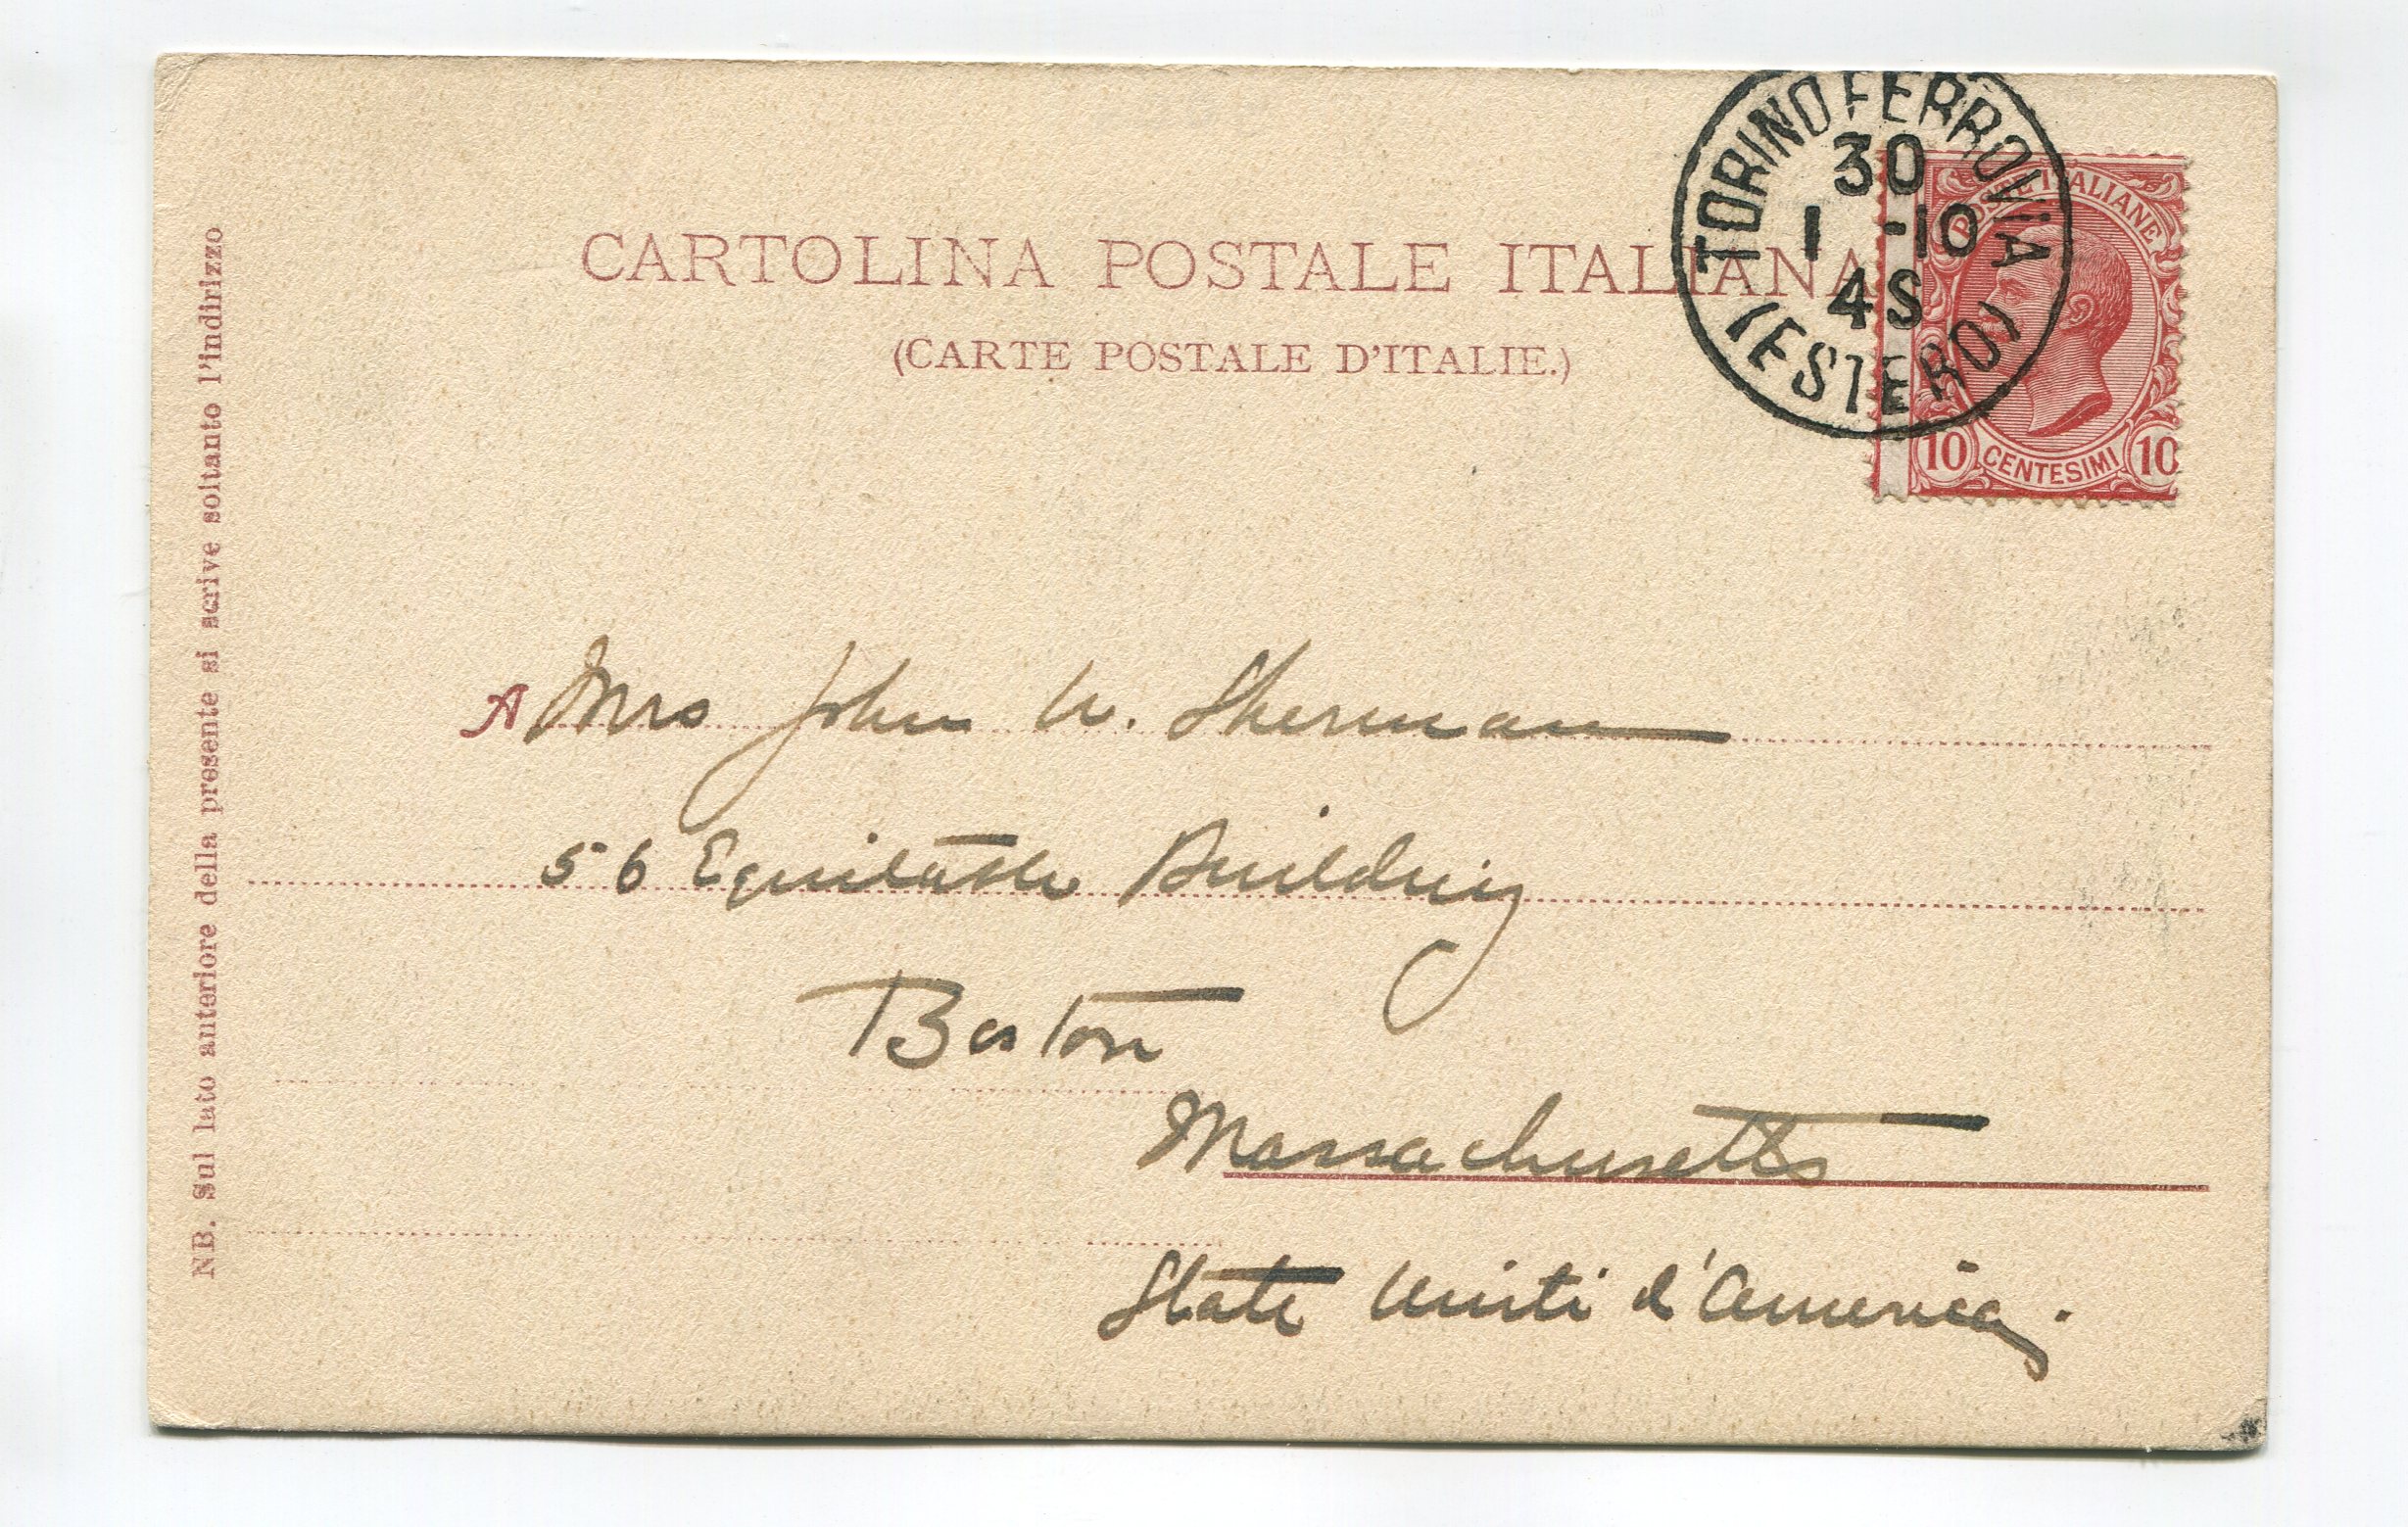 CARTOLINA POSTALE ITALIANA
(CARTE POSTALE D'ITALIE.)
TORINO FERROVIA
30
1 -10
4S
(ESTERO)
POSTE ITALIANE
10 CENTESIMI 10
A Mrs John W. Sherman
56 Equitable Building
Boston
Massachusetts
State Uniti d'America.
NB. Sul lato anteriore della presente si scrive soltanto l'indirizzo